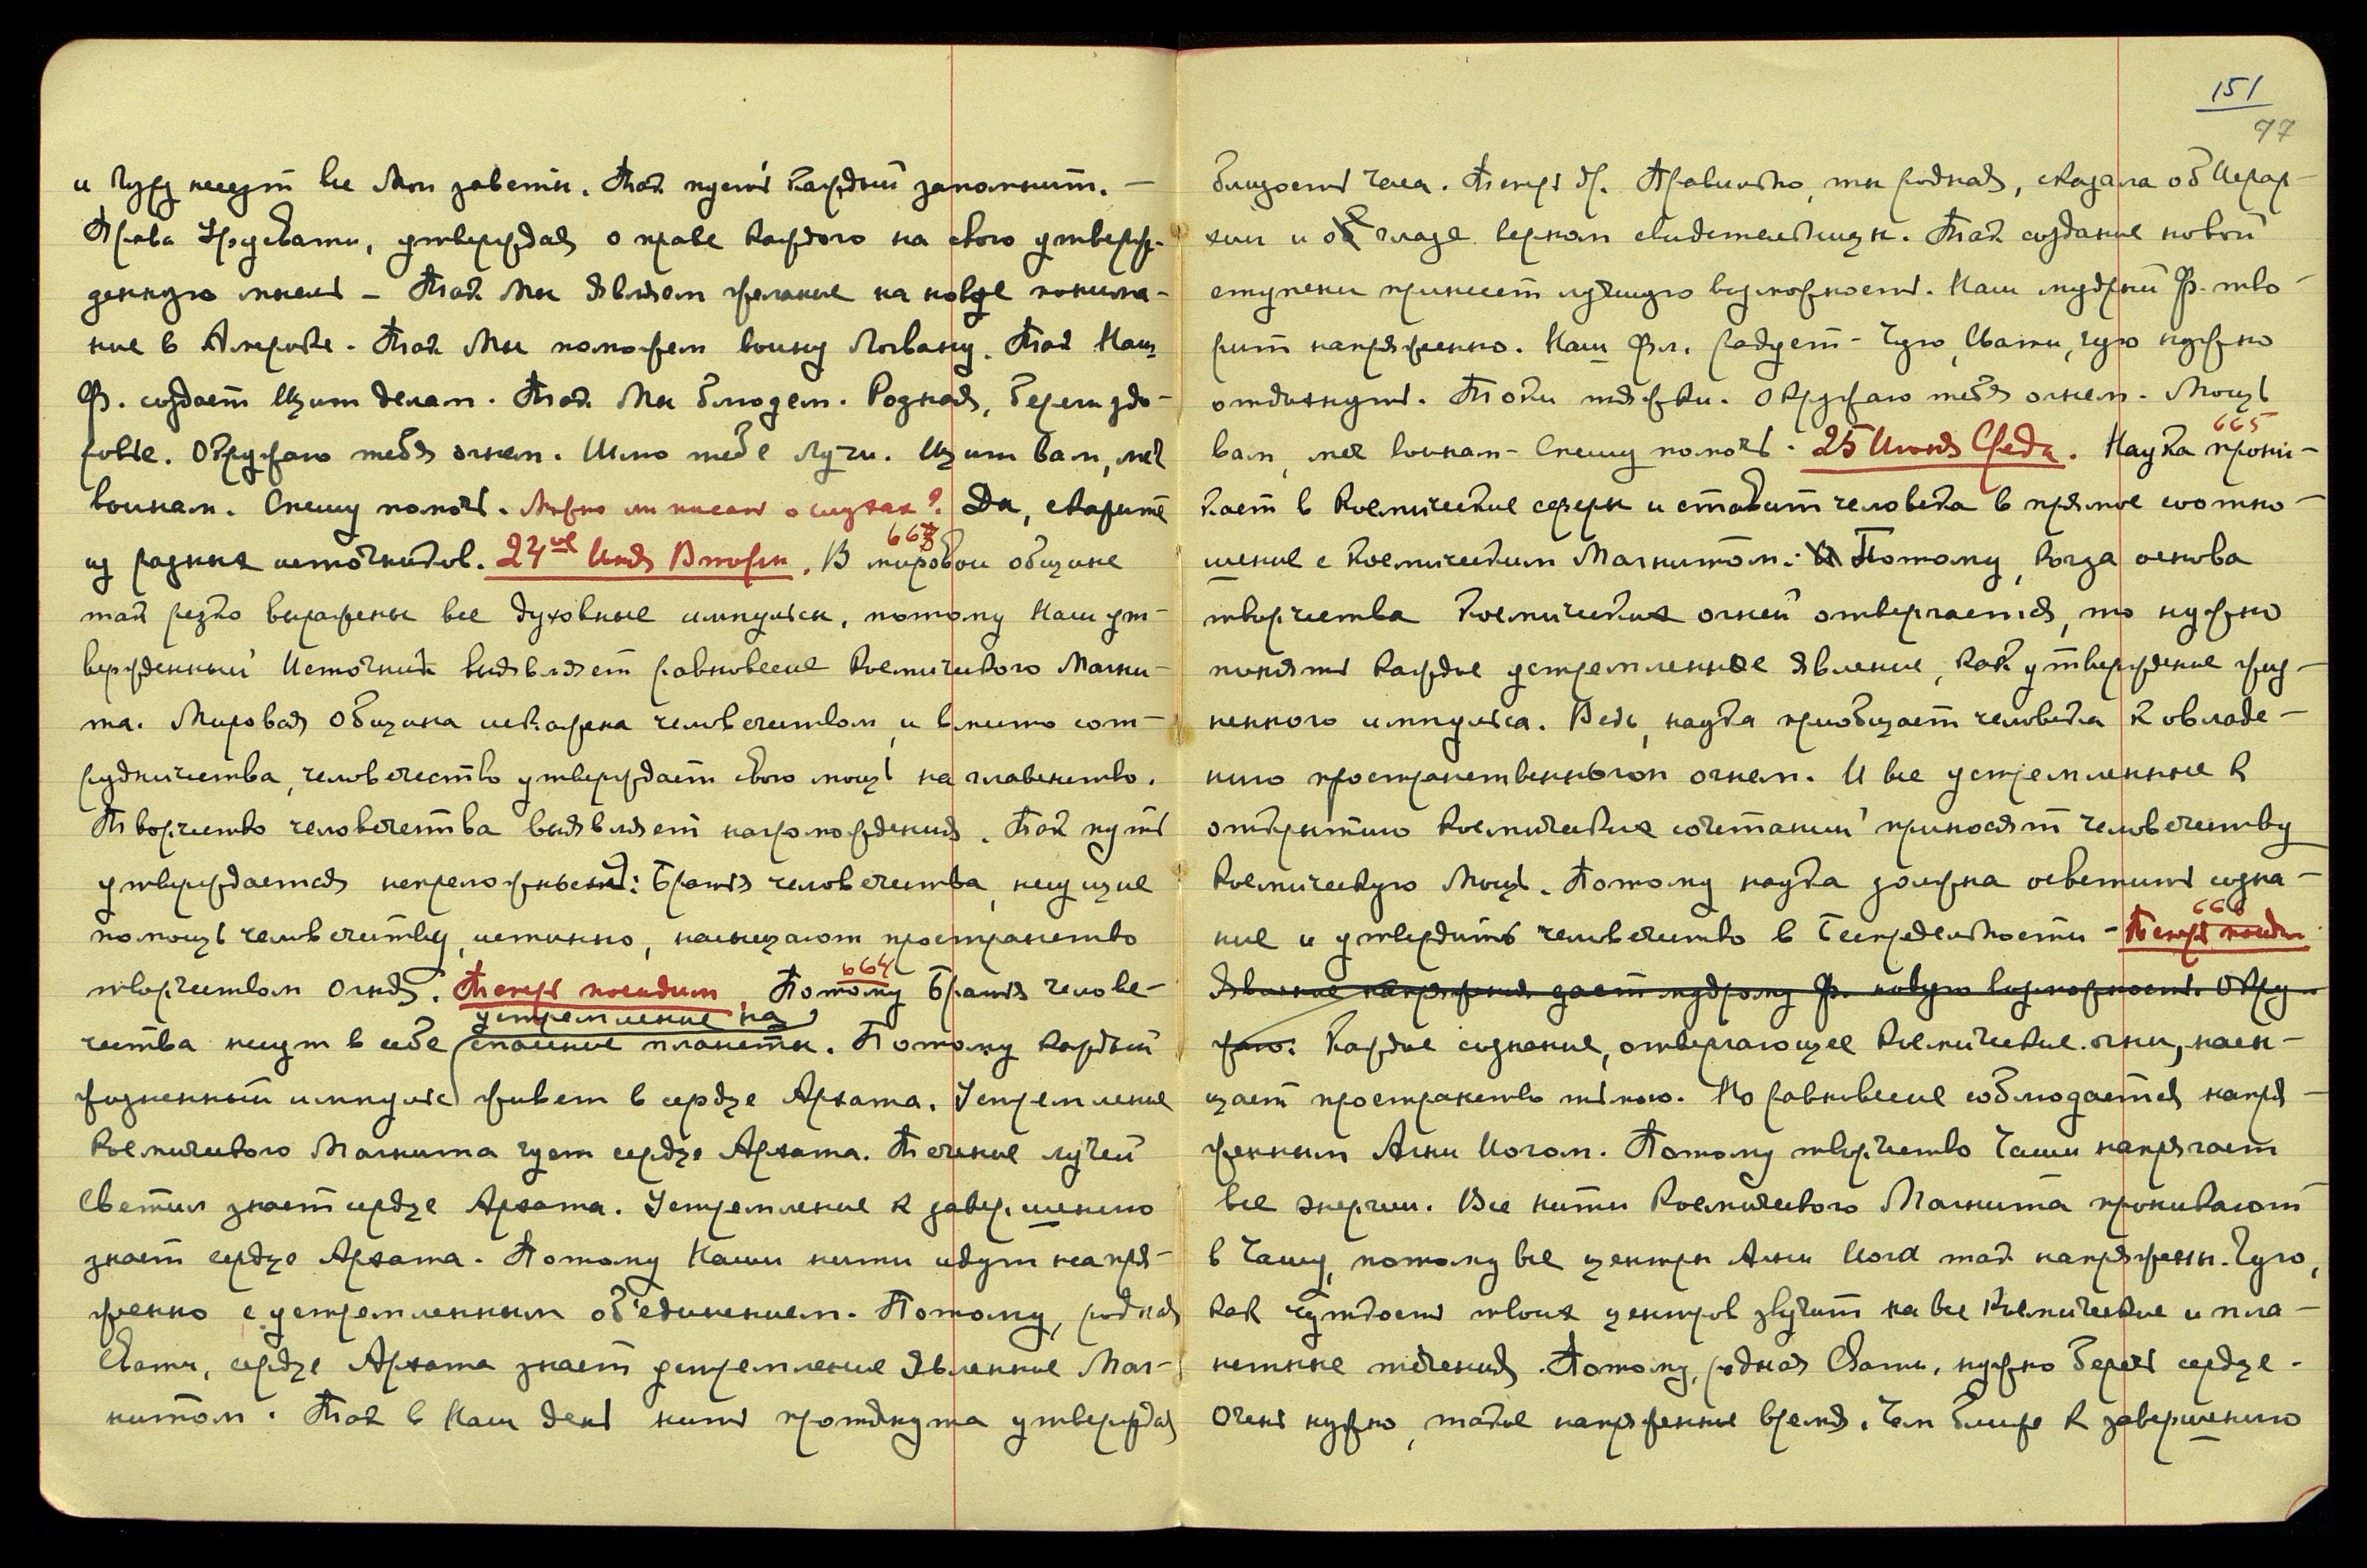 и чуру несут все Мои заветы. Так пусть каждый запомнит. —
Права Урусвати, утверждая о праве каждого на свою утверж-
денную мысль — Так Мы являем желание на новое понима-
ние в Америке. Так Мы поможем воину Логвану. Так Наш
Ф. создает Щит делам. Так Мы блюдем. Родная, береги здо-
ровье. Окружаю тебя огнем. Шлю тебе лучи. Щит вам, меч
воинам. Спешу помочь. Можно ли писать о слухах? Да, скажите
из разных источников. 24ое Июня Вторн. 663 В мировой общине
так резко выражены все духовные импульсы, потому Наш ут-
вержденный Источник выявляет равновесие Космического Магни-
та. Мировая Община искажена человечеством, и вместо сот-
рудничества, человечество утверждает свою мощь на главенство.
Творчество человечества выявляет нагромождения. Так путь
утверждается непреложный: Братья человечества, несущие
помощь человечеству, истинно, насыщают пространство
творчеством Огня. Теперь посидим. 664 Потому Братья челове-
чества несут в себе устремление на спасение планеты. Потому каждый
жизненный импульс живет в сердце Архата. Устремление
Космического Магнита чует сердце Архата. Течение лучей
Светил знает сердце Архата. Устремление к завершению
знает сердце Архата. Потому Наши нити идут напря-
женно с устремленным об'единением. Потому, родная
Свати, сердце Архата знает устремление явленное Маг-
нитом. Так в Наш день нить протянута утверждая
151
77
близость часа. Теперь др. Правильно, ты родная, сказала об Иерар-
хии и о глазе верном свидетельнице. Так создание новой
ступени принесет лучшую возможность. Наш мудрый Ф. тво-
рит напряженно. Наш Фл. радует — Чую, Свати, чую нужно
отдохнуть. Токи тяжки. Окружаю тебя огнем. Мощь
вам, меч воинам — Спешу помочь. 25 Июня Среда. 665 Наука прони-
кает в Космические сферы и ставит человека в прямое соотно-
шение с Космическим Магнитом. Потому, когда основа
творчества Космических огней отвергается, то нужно
понять каждое устремленное явление, как утверждение жиз-
ненного импульса. Ведь, наука приобщает человека к овладе-
нию пространственным огнем. И все устремленные к
открытию Космических сочетаний приносят человечеству
Космическую Мощь. Потому наука должна осветить созна-
ние и утвердить человечество в Беспредельности — 666 Теперь посидим
Явление напряжения дает мудрому Ф. новую возможность. Окру-
жаю. Каждое сознание, отвергающее Космические огни, насы-
щает пространство тьмою. Но равновесие соблюдается напря-
женным Агни Йогом. Потому творчество Чаши напрягает
все энергии. Все нити Космического Магнита проникают
в Чашу, потому все центры Агни Йога так напряжены. Чую,
как чуткость твоих центров звучит на все Космические и пла-
нетные течения. Потому, родная Свати, нужно беречь сердце.
Очень нужно, такое напряженное время. Чем ближе к завершению